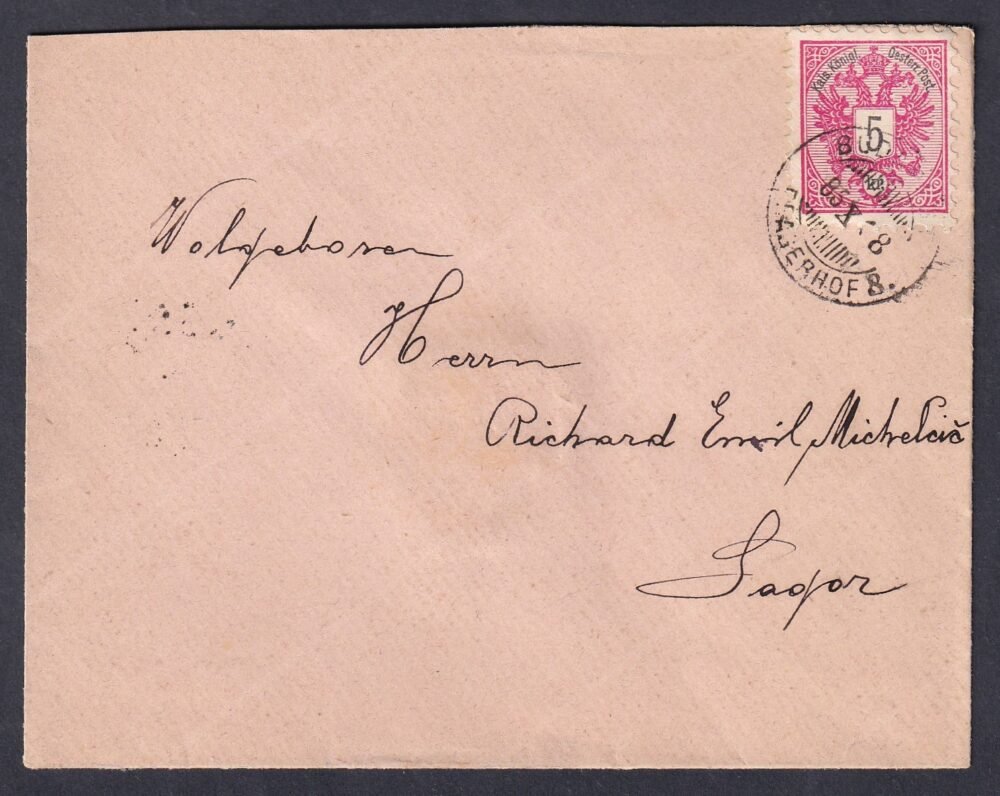 Kais. Königl. Oesterr. Post.
5
85 X 8
PRAGERHOF
Wolgeboren
Herrn
Richard Emil Michelčič
Sagor